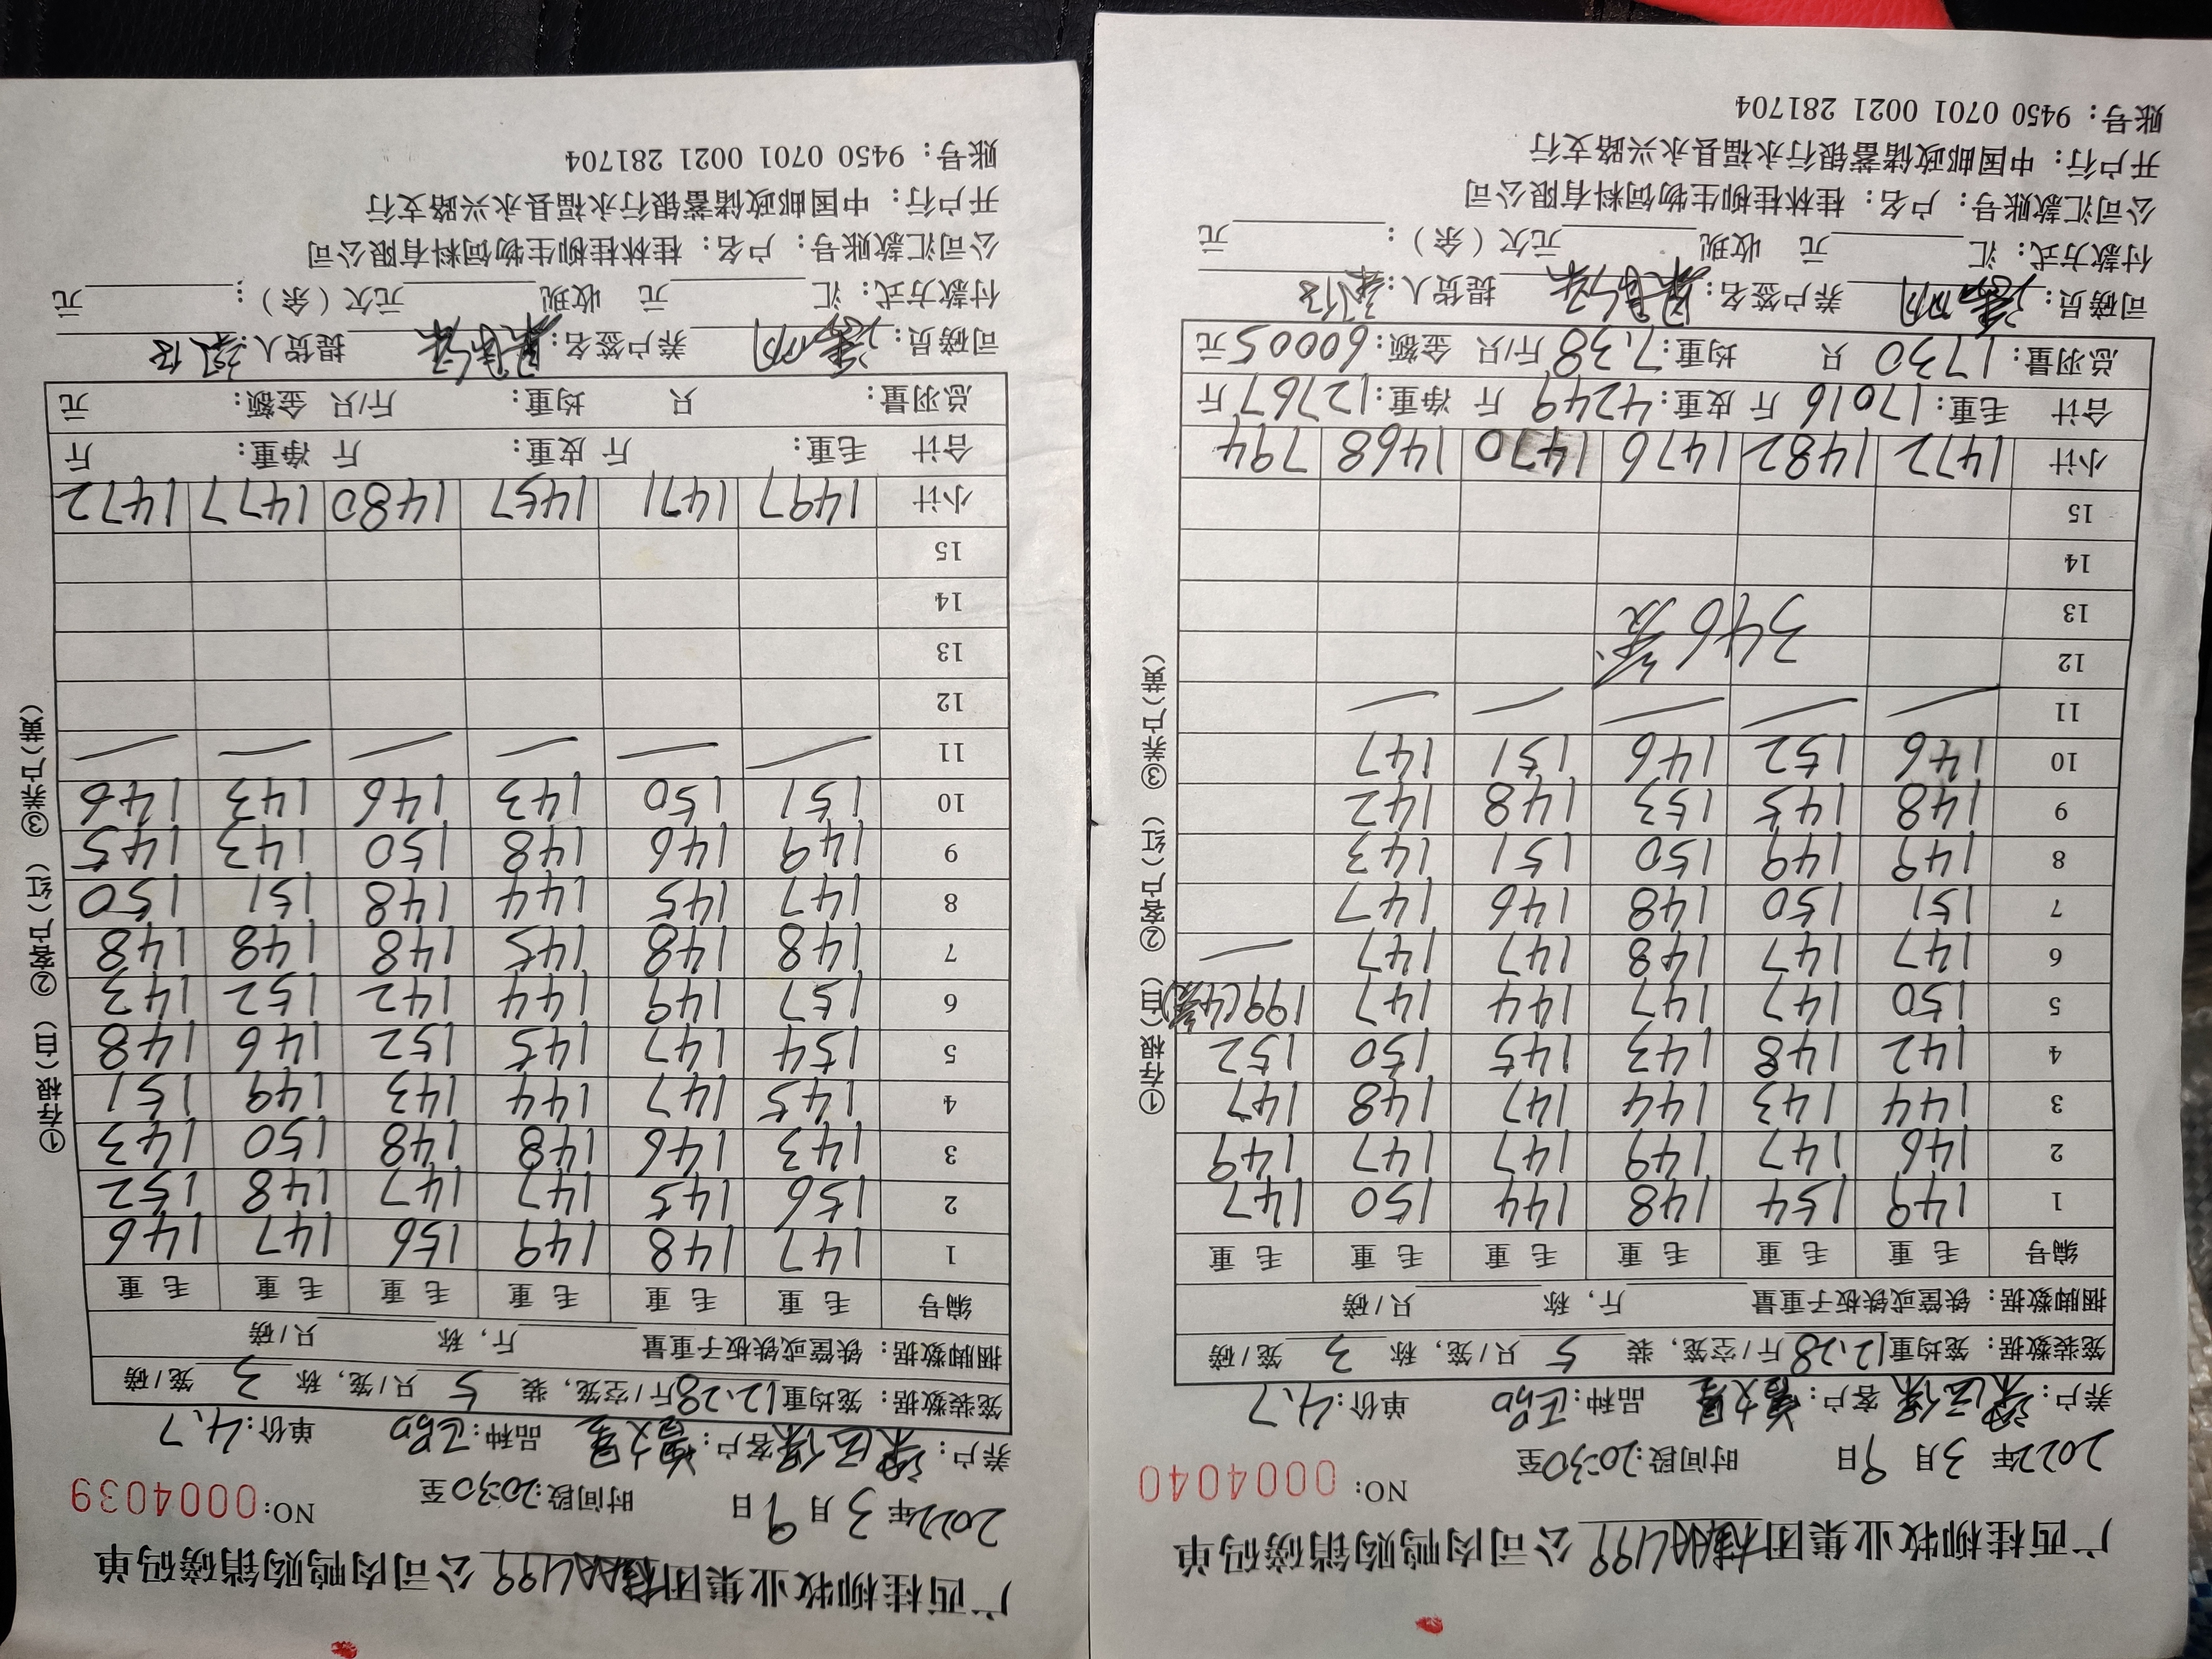 广西桂柳牧业集团公司肉鸭购销磅码单
2022年 3月 9日 时间段:20:30至 NO: 0004040
养户: 客户: 品种: 单价:4.7
笼装数据: 笼均重12.28斤/空笼, 装 5 只/笼, 称 3 笼/磅
捆脚数据: 铁筐或铁板子重量 斤, 称 只/磅
编号 毛重 毛重 毛重 毛重 毛重 毛重
1 149 154 148 144 150 147
2 146 147 149 147 147 149
3 144 143 144 147 148 147
4 142 148 143 145 150 152
5 150 147 147 144 147 199(4笼)
6 147 147 148 147 147 —
7 151 150 148 146 147
8 149 149 150 151 143
9 148 145 153 148 142
10 146 152 146 151 147
11 — — — — —
12
346笼
13
14
15
小计 1472 1482 1476 1470 1468 794
合计 毛重:17016斤 皮重:4249斤 净重:12767斤
总羽量:1730只 均重:7.38斤/只 金额:60005元
司磅员: 养户签名: 提货人:
付款方式: 汇 元 收现 元欠(余): 元
公司汇款账号: 户名: 桂林桂柳生物饲料有限公司
开户行: 中国邮政储蓄银行永福县永兴路支行
账号: 9450 0701 0021 281704
①存根(白) ②客户(红) ③养户(黄)
广西桂柳牧业集团公司肉鸭购销磅码单
2022年 3月 9日 时间段:20:30至 NO: 0004039
养户: 客户: 品种: 单价:4.7
笼装数据: 笼均重12.28斤/空笼, 装 5 只/笼, 称 3 笼/磅
捆脚数据: 铁筐或铁板子重量 斤, 称 只/磅
编号 毛重 毛重 毛重 毛重 毛重 毛重
1 147 148 149 156 147 146
2 156 145 147 147 148 152
3 143 146 148 148 150 143
4 145 147 144 143 149 151
5 154 147 145 152 146 148
6 157 149 144 142 152 143
7 148 148 145 148 148 148
8 147 145 144 148 151 150
9 149 146 148 150 143 145
10 151 150 143 146 143 146
11 — — — — — —
12
13
14
15
小计 1497 1471 1457 1480 1477 1472
合计 毛重: 斤 皮重: 斤 净重: 斤
总羽量: 只 均重: 斤/只 金额: 元
司磅员: 养户签名: 提货人:
付款方式: 汇 元 收现 元欠(余): 元
公司汇款账号: 户名: 桂林桂柳生物饲料有限公司
开户行: 中国邮政储蓄银行永福县永兴路支行
账号: 9450 0701 0021 281704
①存根(白) ②客户(红) ③养户(黄)